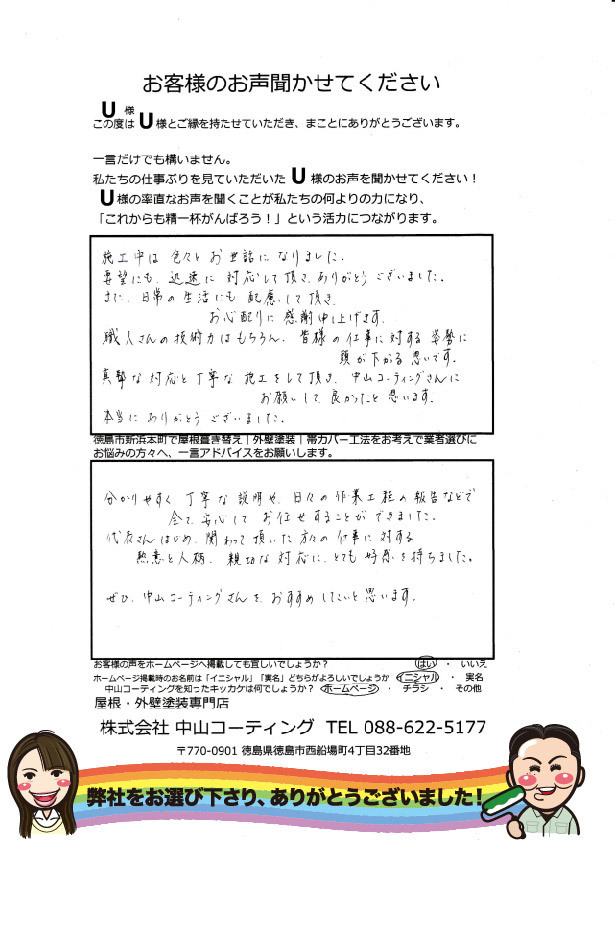 お客様のお声聞かせてください
U 様
この度は U 様とご縁を持たせていただき、まことにありがとうございます。
一言だけでも構いません。
私たちの仕事ぶりを見ていただいた U 様のお声を聞かせてください！
U 様の率直なお声を聞くことが私たちの何よりの力になり、
「これからも精一杯がんばろう！」という活力につながります。
施工中は色々とお世話になりました。
要望にも、迅速に対応して頂き、ありがとうございました。
また、日常の生活にも配慮して頂き、
お心配りに感謝申し上げます。
職人さんの技術力はもちろん、皆様の仕事に対する姿勢に
頭が下がる思いです。
真摯な対応と丁寧な施工をして頂き、中山コーティングさんに
お願いして、良かったと思います。
本当にありがとうございました。
徳島市新浜本町で屋根葺き替え｜外壁塗装｜帯カバー工法をお考えで業者選びに
お悩みの方々へ、一言アドバイスをお願いします。
分かりやすく丁寧な説明や、日々の作業工程の報告などで
全て、安心してお任せすることができました。
代表さんはじめ、関わって頂いた方々の仕事に対する
熱意と人柄、親切な対応に、とても好感を持ちました。
ぜひ、中山コーティングさんを、おすすめしたいと思います。
お客様の声をホームページへ掲載しても宜しいでしょうか？ はい ・ いいえ
ホームページ掲載時のお名前は「イニシャル」「実名」どちらがよろしいでしょうか イニシャル ・ 実名
中山コーティングを知ったキッカケは何でしょうか？ ホームページ ・ チラシ ・ その他
屋根・外壁塗装専門店
株式会社 中山コーティング TEL 088-622-5177
〒770-0901 徳島県徳島市西船場町4丁目32番地
弊社をお選び下さり、ありがとうございました！